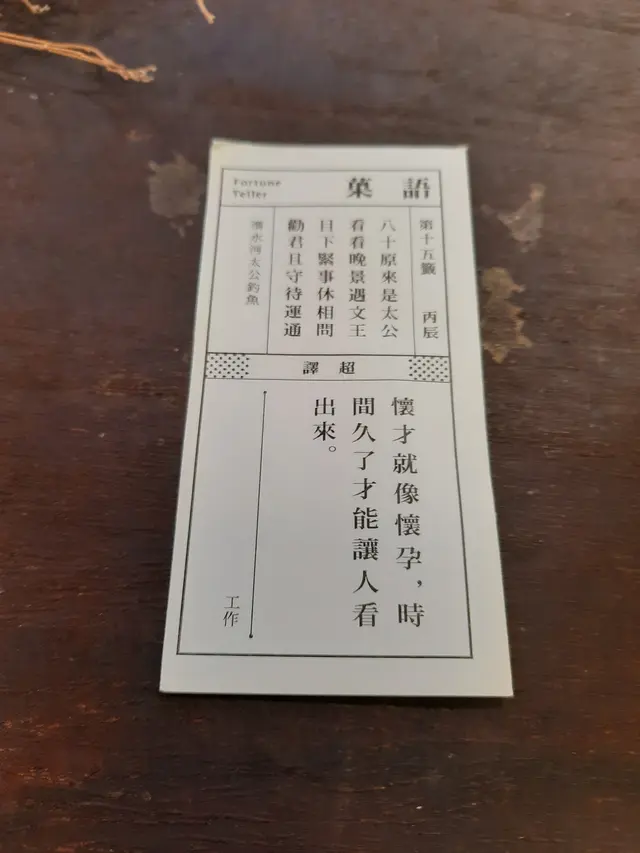 語菓
Fortune
Teller
第十五籤 丙辰
八十原來是太公
看看晚景遇文王
目下緊事休相問
勸君且守待運通
渭水河太公釣魚
超譯
懷才就像懷孕，時
間久了才能讓人看
出來。
工作